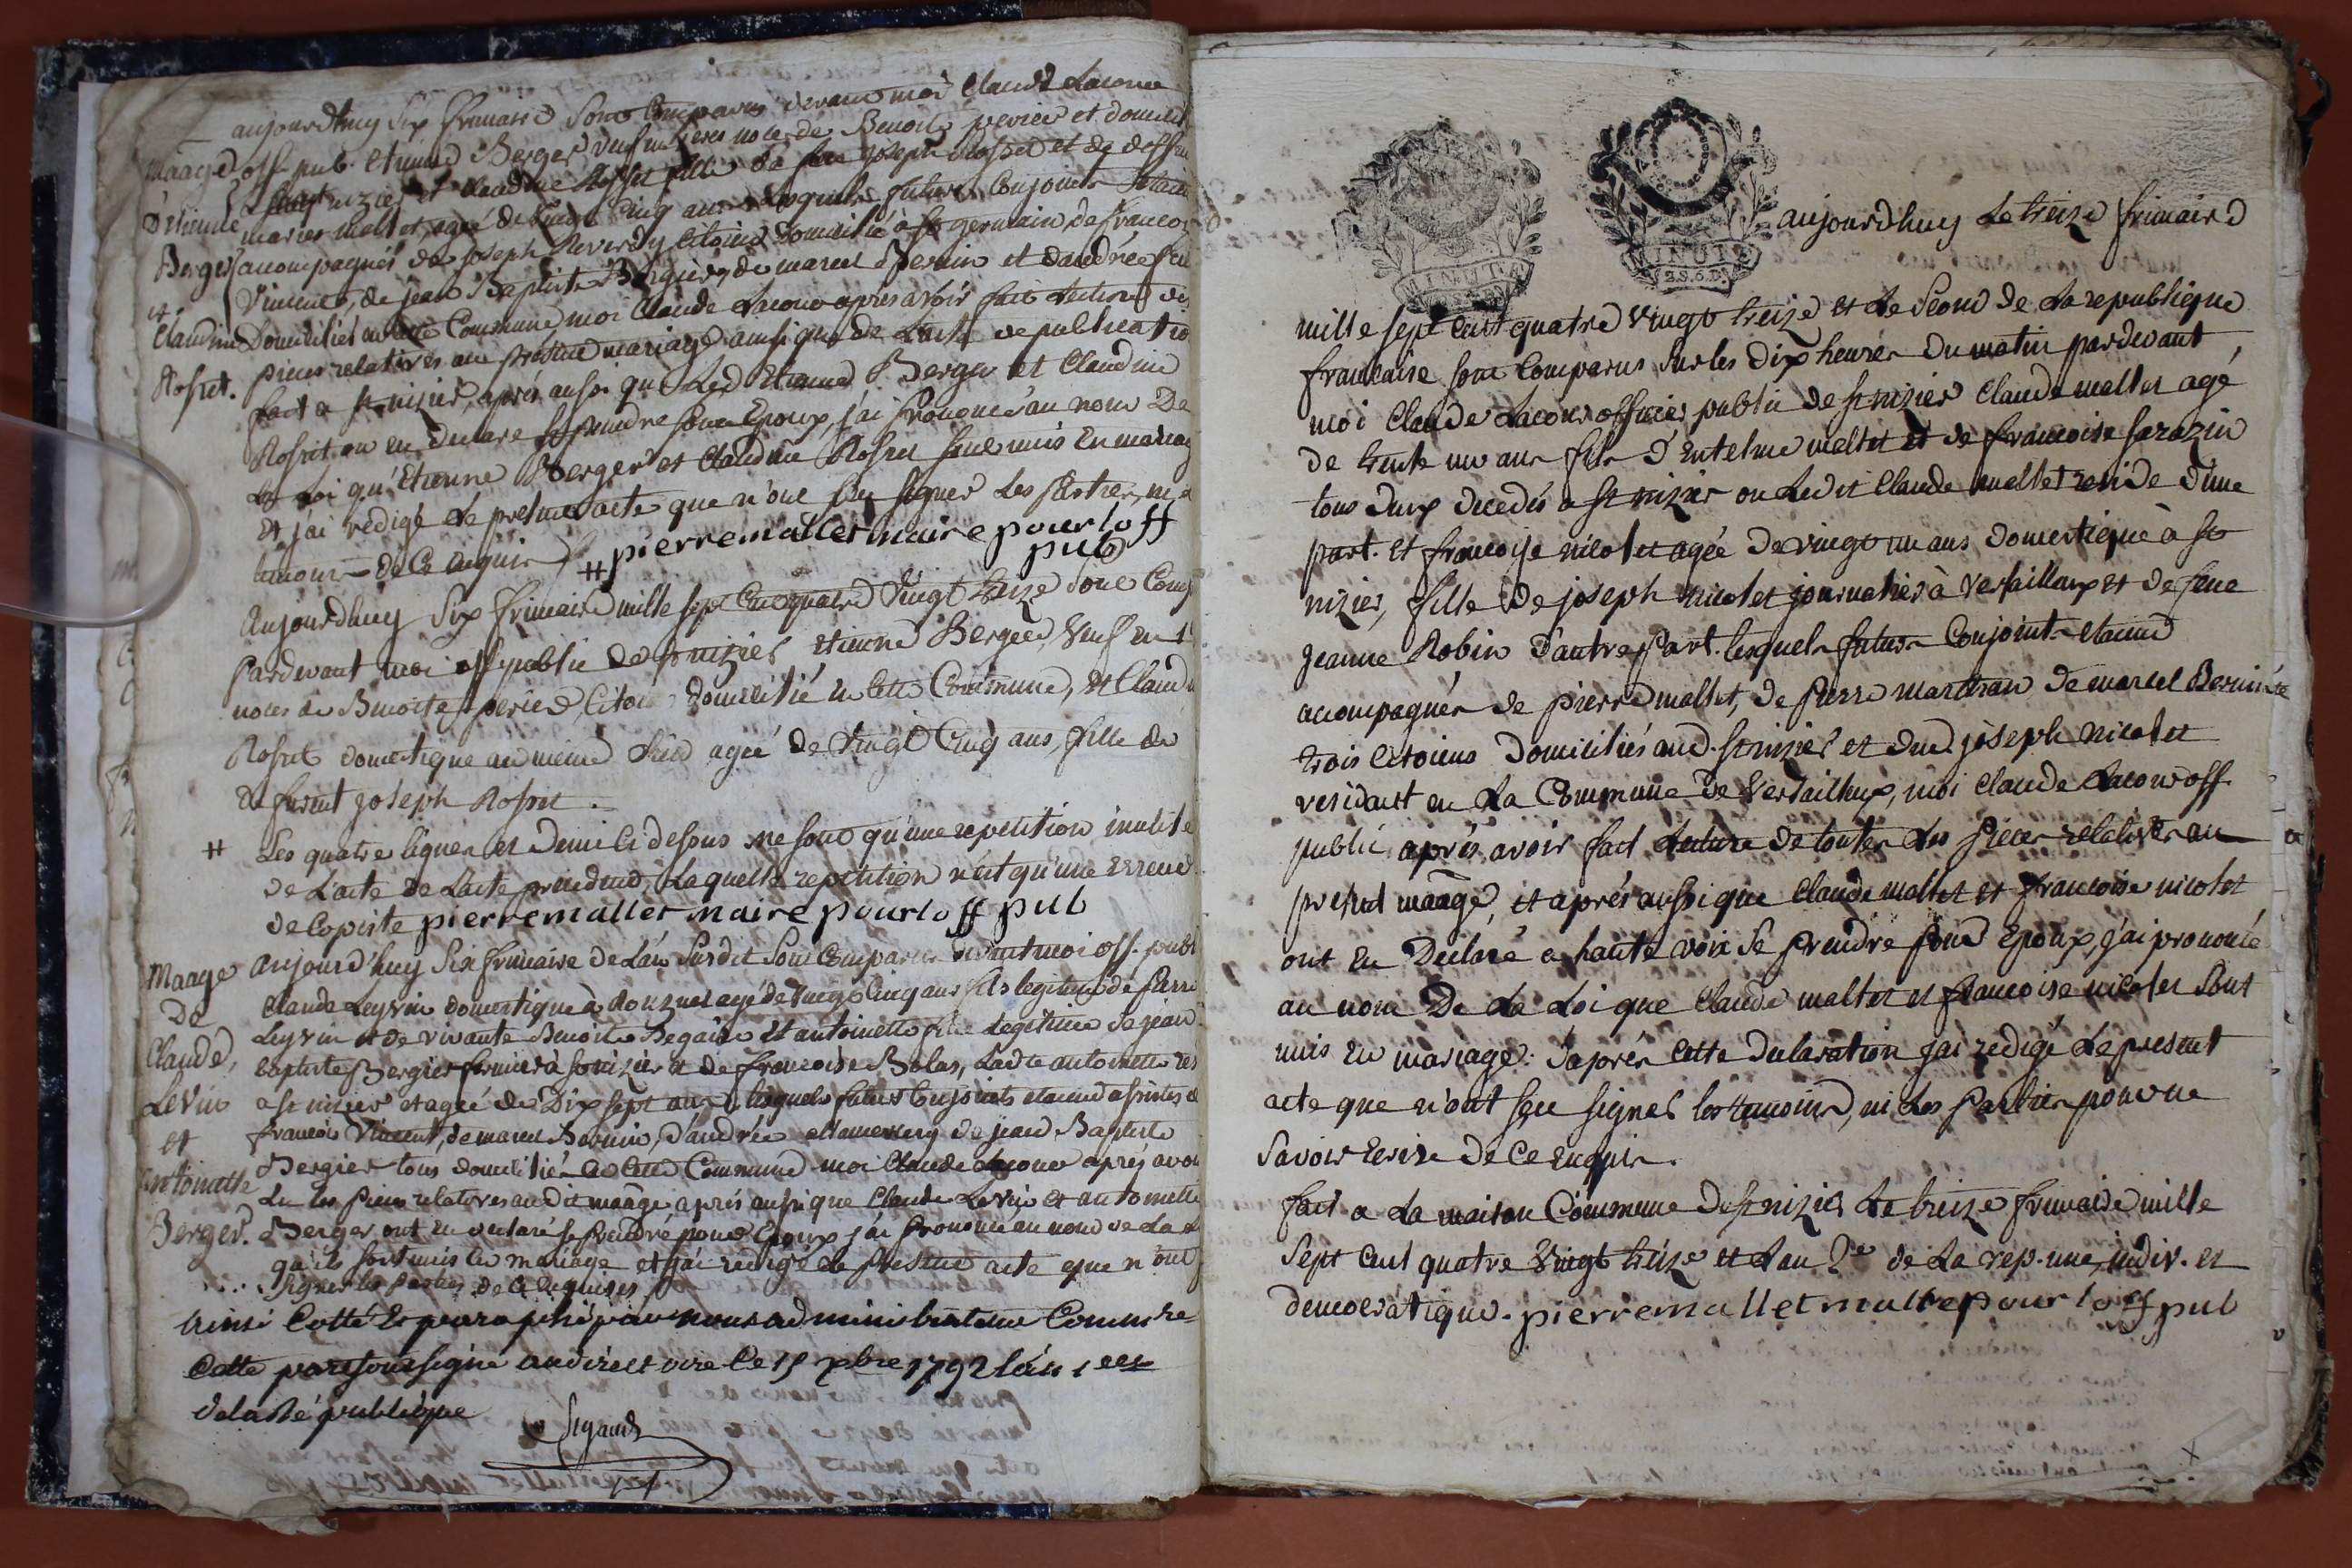 aujourdhuy six frimaire sont comparus devant moi Claude Lacour
off. pub. etienne Berger veuf en 1eres noces de Benoite perier et domicilié
a saint nizier et Claudine Rosset fille de feu joseph Rosset et de deffunte
maries mallet, agée de vingt cinq ans lesquels futurs Conjoints etaient
accompagnés de joseph Reverdy citoien domicilié à st germain de francois
Vincent, de jean Baptiste Bergier, de marcel Bernin et d'andrée
Domiciliés en cette Commune, moi Claude Lacour après avoir fait Lecture des
pieces relatives au present mariage ainsi que de Lacte de publication
fait a st nizier, après aussi que Led Etienne Berger et Claudine
Rosset on en declaré se prendre pour Epoux, j'ai prononcé au nom De
La Loi qu'Etienne Berger et Claudine Rosset sont unis En mariage
et j'ai redigé Le present acte que n'ont sçu signer Les Parties, ni
temoins de Ce enquis
# pierre mallet maire pour loff
pub
Mâage
D'etienne
Berger
et
Claudine
Rosset.
Aujourdhuy Six frimaire mille sept Cent quatre Vingt treize sont Comp
Pardevant moi off public de st nizier etienne Berger, Veuf en 1
noces de Benoite perier, Citoien domicilié en cette Commune, et Claudi
Rosset domestique au même lieu agée de Vingt Cinq ans, fille de
defunt joseph Rosset.
# Les quatre lignes et Demi Ci dessus ne sont qu'une repetition inutile
de L'acte de Lacte precedent, Laquelle repetition n'est qu'une erreur
de Copiste pierre mallet maire pour lo ff pub
Maage
De
Claude,
Levin
et
antoinette
Berger.
Aujourd'huy Six frimaire de L'an Susdit Sont Comparus devant moi off. publ
Claude Leyvin domestique à Ronzuel agé de Vingt Cinq ans fils legitime de Pierre
Leyvin et de vivante Benoite Begain et antoinette fille Legitime de jean
baptiste Bergier fermier à st nizier et de francoise Bolas, Ladte antoinette res
a st nizier et agée de Dix sept ans, lesquels futurs Conjoints etaient assistés d
francois Vincent, de marcel Bernin, d'andrée de jean Baptiste
Bergier tous domiciliés de cette Commune moi Claude Lacour aprés avoir
Lu les pieces relatives audit maâge aprés aussi que Claude Levin et antoinette
Berger ont en declaré se prendre pour Epoux j'ai prononcé au nom de La L
qu'ils sont unis en mariage et j'ai redigé le present acte que n'ont
signer les parties de ce requises
Ainsi Cotté et paraphé par nous administrateur Commre
Cotte par soussigné au directoire le 15 xbre 1792 l'an 1er
de la République
Sigaud
MINUTE
MINUTE
2S.6D.
aujourdhuy Le treize frimaire
mille sept Cent quatre Vingt treize et Le Second de La republique
francaise sont Comparus sur les Dix heures Du matin pardevant
moi Claude Lacour officier public de st nizier Claude mallet agé
de trente un ans fils D'Entelme mallet et de francoise sarazin
tous Deux Decedés a st nizier ou Ledit Claude mallet reside d'une
part. et francoise nicolet agée De vingt un ans domestique à st
nizier, fille de joseph nicolet journalier à Versailleux et de feue
jeanne Robin d'autre Part. lesquels futurs Conjoints etaient
accompagnés de pierre mallet, de Pierre marthian de marcel Bernin
trois Citoiens Domiciliés aud. st nizier et Dud. joseph nicolet
residant en La Commune de Versailleux, moi Claude Lacour off.
public aprés avoir fait Lecture de toutes Les pieces relatives au
present maâge, et aprés aussi que Claude mallet et francoise nicolet
ont En Declaré a haute voix Se Prendre pour Epoux, j'ai prononcé
au nom De La Loi que Claude mallet et francoise nicolet Sont
unis En mariage: D'aprés Cette Declaration jai redigé Le present
acte que n'ont sçu signer les temoins, ni Les Parties pour ne
savoir Ecrire De Ce Enquis.
fait a La maison Commune de st nizier Le treize frimaire mille
Sept Cent quatre Vingt treize et L'an 2e de La rep. une, indiv. et
democratique. pierre mallet maire pour lo ff pub